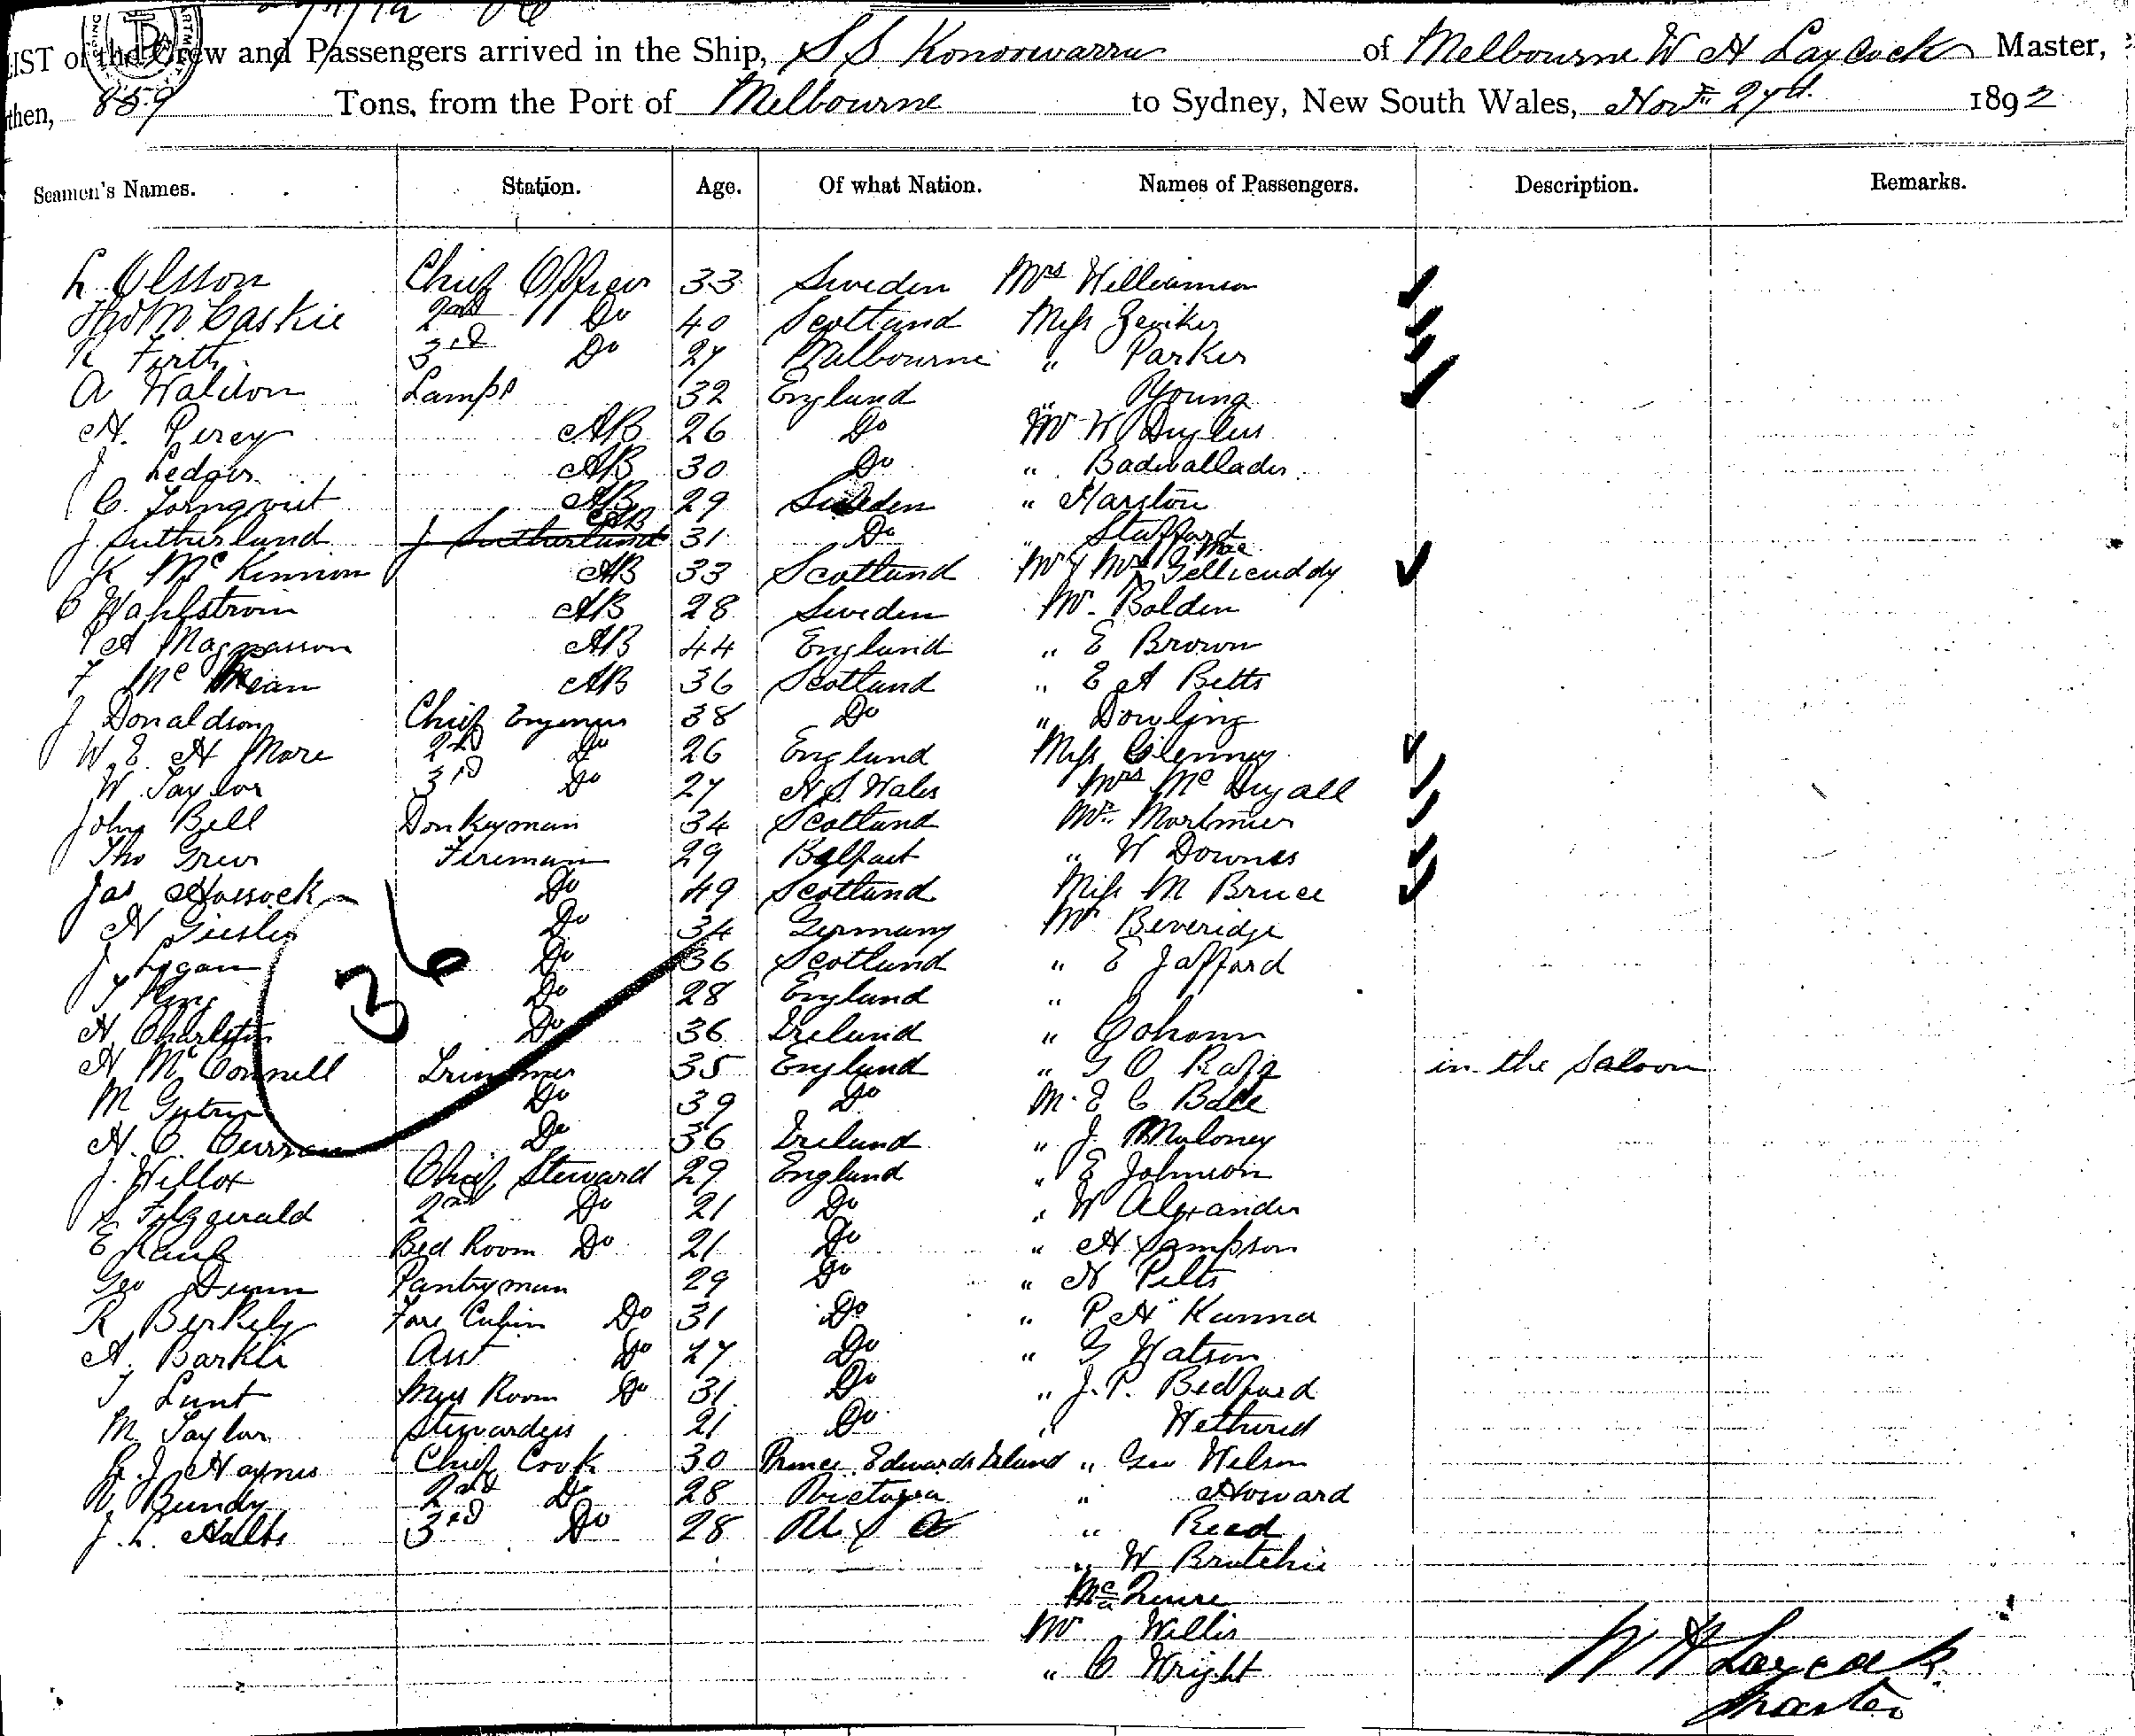 LIST of the Crew and Passengers arrived in the Ship, S S Konoowarra of Melbourne W H Laycock Master,
then, 859 Tons, from the Port of Melbourne to Sydney, New South Wales, Nov 27th 1892
Seamen's Names. Station. Age. Of what Nation. Names of Passengers. Description. Remarks.
L Olsson Chief Officer 33 Sweden Mrs Williamson
McCaskie 2nd Do 40 Scotland Miss
R Firth 3rd Do 27 Melbourne " Parker
A Waldon Lamps 32 England " Young
H. Percy AB 26 Do Mr W
J Ledger AB 30 Do " Badwallader
C. Tornqvist AB 29 Sweden " Harston
J Sutherland J Sutherland AB 31 Do " Stafford
K McKinnon AB 33 Scotland Mr & Mrs Mac Gellicuddy
C Wahlstrom AB 28 Sweden Mr Bolden
A Magnasson AB 44 England " E Brown
F Mc AB 36 Scotland " E A Betts
J Donaldson Chief Engineer 38 Do " Dowling
W. E. H More 2nd Do 26 England Miss Glenney
W Taylor 3rd Do 27 N S. Wales Mrs Mc
John Bell Donkeyman 34 Scotland Mr Mortimer
Tho Greer Fireman 29 Belfast " W Downes
Jas Hossock Do 49 Scotland Miss M Bruce
H Giesler Do 34 Germany Mr Beveridge
J Logan Do 36 Scotland " E Jafford
36
T King Do 28 England "
H Charleton Do 36 Ireland "
H McConnell Trimmer 35 England " G O in the Saloon
M Do 39 Do M. E C Bale
H. C. Curran Do 36 Ireland " J. Maloney
J. Willox Chief Steward 29 England " E Johnson
S Fitzgerald 2nd Do 21 Do " W Alexander
E Bed Room Do 21 Do " H Sampson
Geo Dunn Pantryman 29 Do " N Pelts
R Berkely Fore Cabin Do 31 Do " P. H Kanna
A. Barkli Asst Do 27 Do " G Watson
T Lunt Mess Room Do 31 Do " J. P. Bedford
M Taylor Stewardess 21 Do " Wethered
R. J Haynes Chief Cook 30 Prince Edwards Island " Geo Wilson
W Bundy 2nd Do 28 Victoria " Howard
J. L. Holts 3rd Do 28 U S A " Reed
" W Brutchie
Mr Willis
" C Wright
W H Laycock
Master